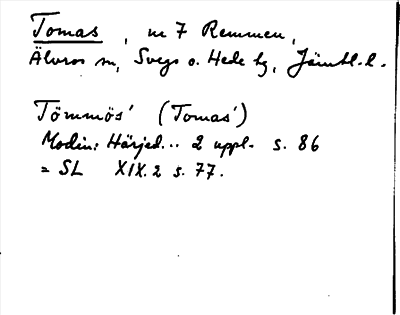 Tomas, nr 7 Remmen,
Älvros sn, Svegs o. Hede tg, Jämtl. l.
Tömmös' (Tomas')
Modin: Härjed... 2 uppl. s. 86
= SL XIX.2 s. 77.